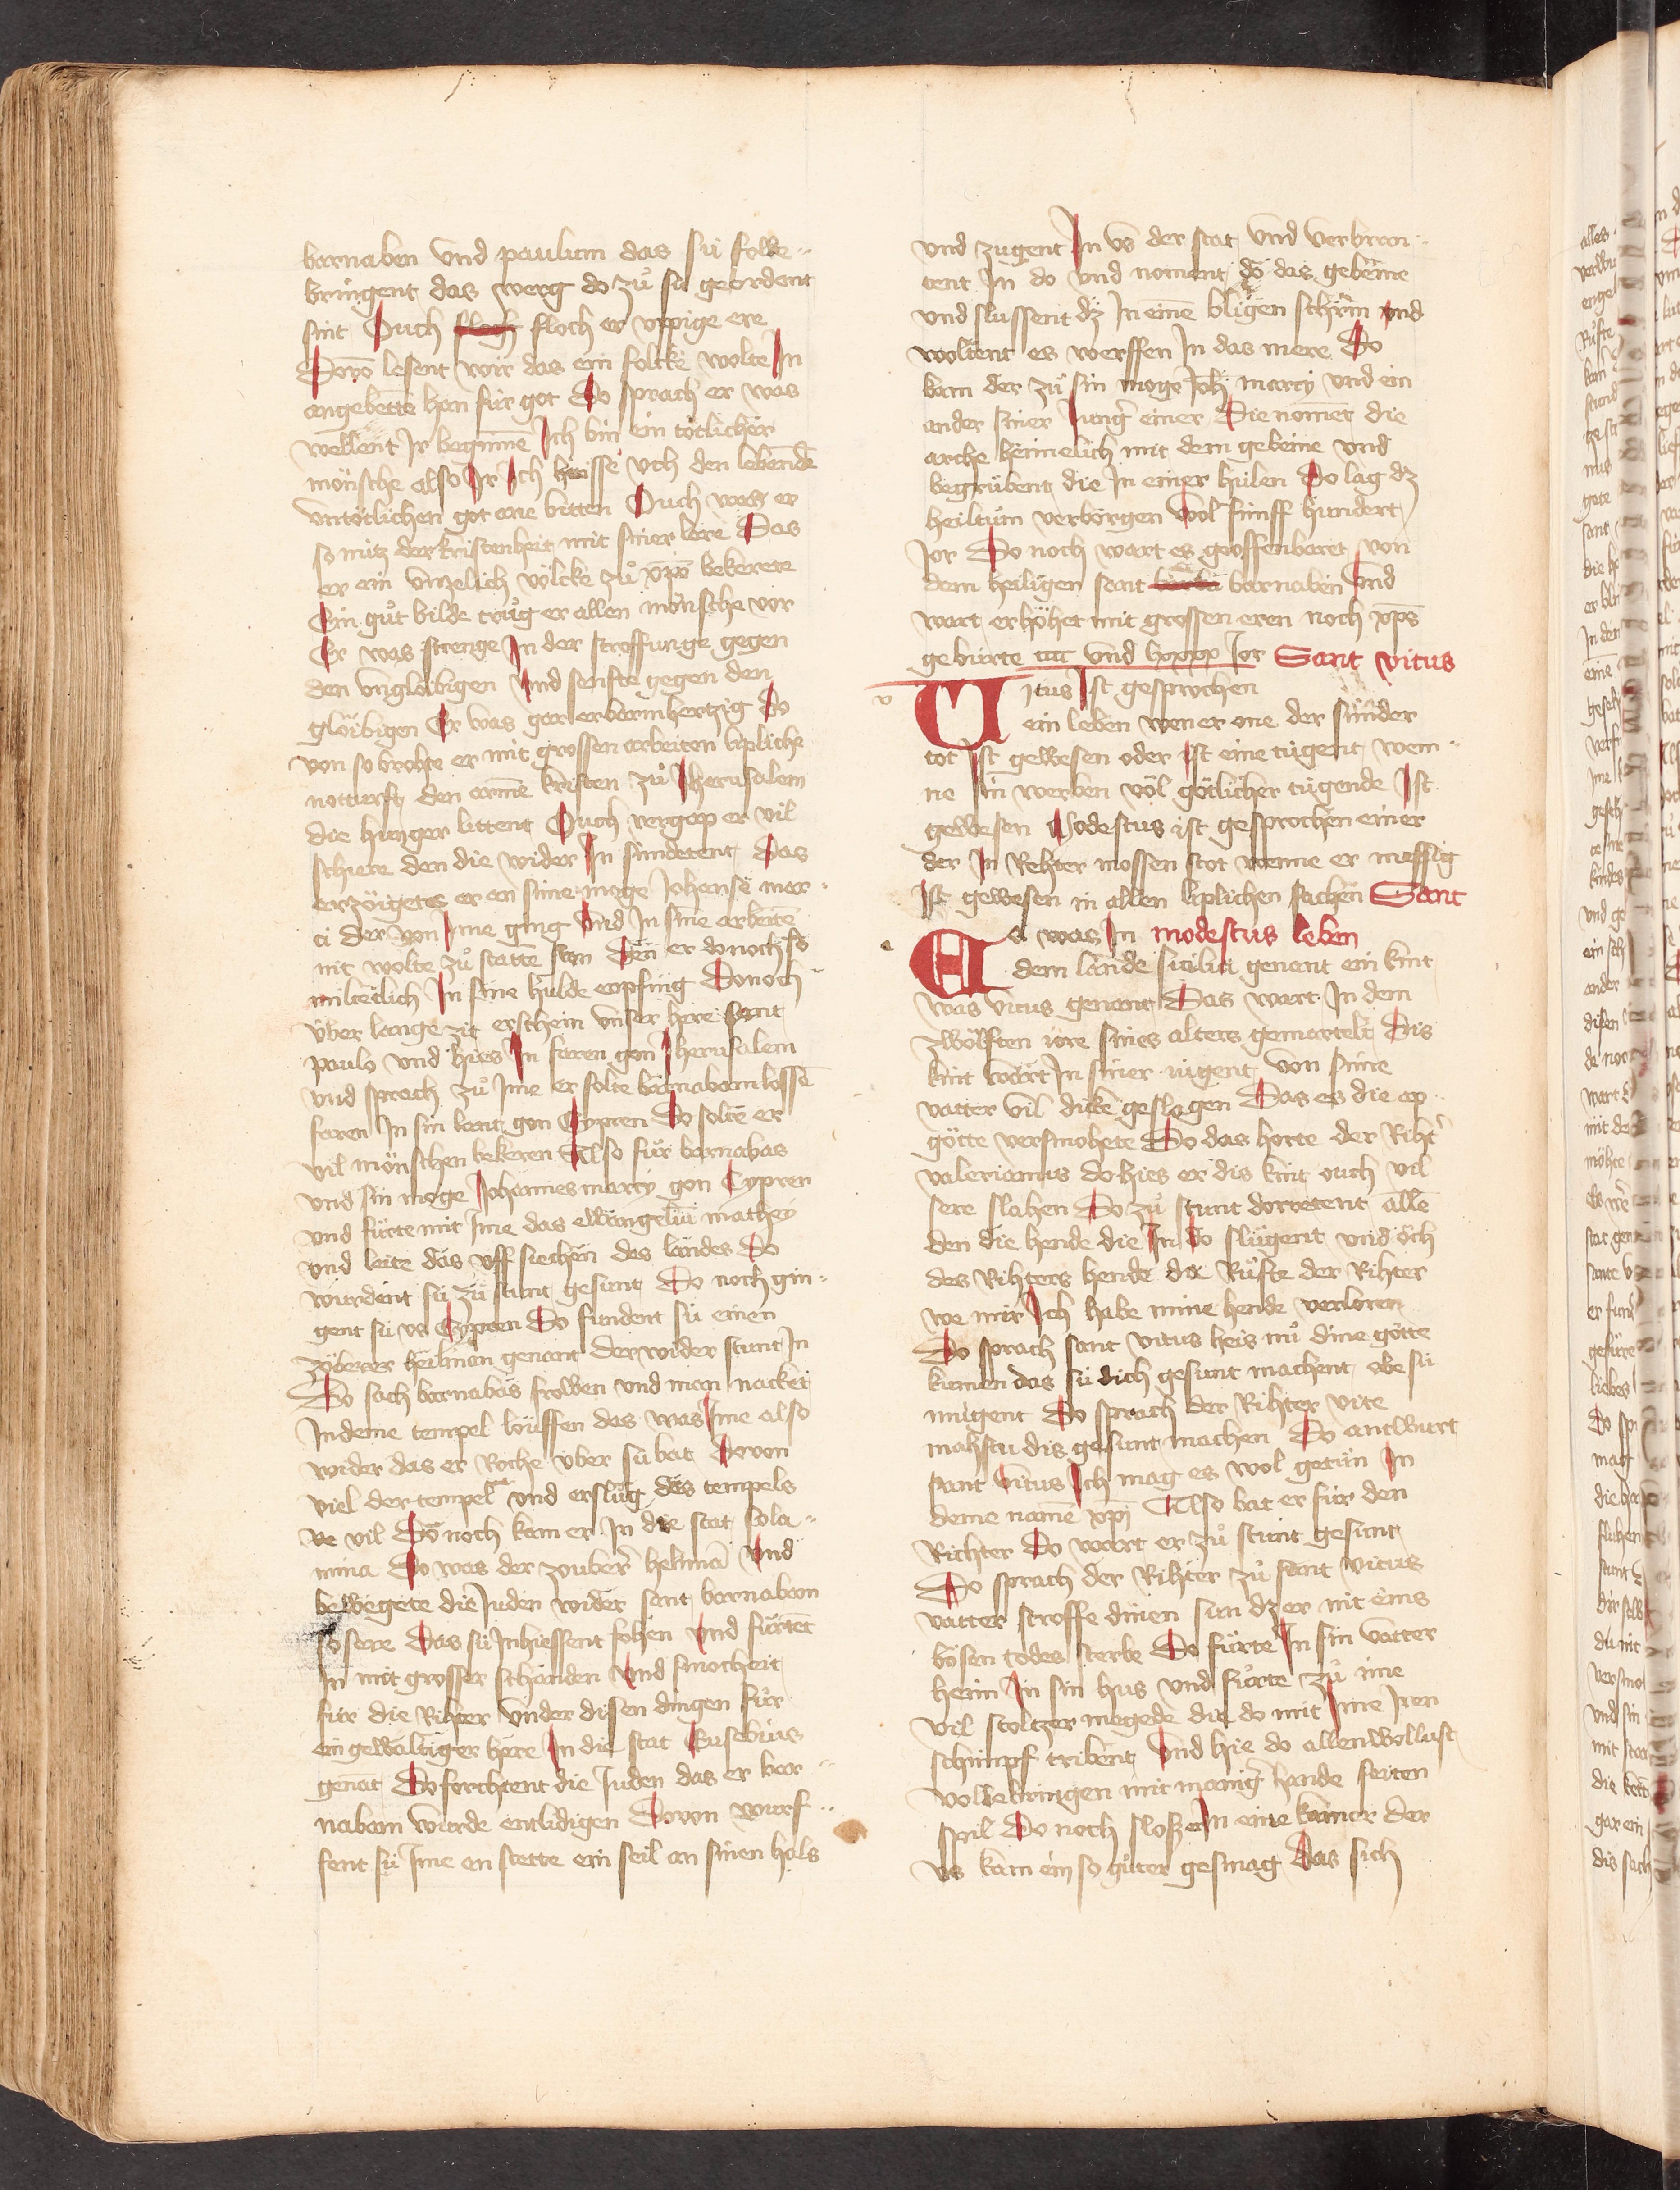 barnaben vnd paulum das sü folle„
bringent das werg do zuͦ sü geordent
sint Ouch floch er vppige ere
Dovō lesent wir das ein folcke wolte In
angebette han für got Do sprach er was
wellent Ir beginne Ich bin ein toͤtlicher
moͤnsche also Ir Ich heisse vch den lebendē
vntoͤtlichen got ane bitten Ouch was er
so nütz der kristenheit mit siner lere Das
er ein vnzelich voͤlcke zuͦ xp̄o bekerete
Ein guͦt bilde truͦg er allen moͤnsche vor
Er was strenge In der stroffunge gegen
den vngloͤibigen Vnd senfte gegen den
gloͤibigen Er was gar erbarmhertzig Do
von so brohte er mit grossen arbeiten liplich
notturft den armē kristen zuͦ Iherusalem
die hunger littent Ouch vergap er vil
schiere den die wider In sündetent Das
erzoͤigetes er an sine moge Johanse mar„
ci der von Ime ging Vnd In sine arbeitē
nit wolte zuͦ statte ston Den er donoch so
milteclich In sine hulde enpfing Donoch„
über lange zit erschein vnser here sant
paulo vnd hies In faren gon Iherusalem
vnd sprach zuͦ Ime er solte barnabam lossē
faren In sin lant gon Cypren Do solte er
vil moͤnschen bekeren Also fuͦr barnabas
vnd sin moge Johannes marcy gon Cypren
vnd fuͤrte mit Ime das ewangeliū mathey
vnd leite das vff siechen des landes Do
wurdent sü zuͦ stunt gesunt Do noch gin„
gent sü vs Cypren Do fundent sü einen
zoͤberer heliman genant der wider stunt In
Do sach barnabas frowen vnd man nacket
In deme tempel louffen das was Ime also
wider das er Roche über sü bat Dovon
viel der tempel vnd ersluͦg des tempels
ve vil Do noch kam er In die stat sala„
mina Do was der zuberer helimā Vnd
bewegete die Juden wider sant barnabam
so sere Das sü In hiessent fohen Vnd fuͤrtēt
In mit grosser schanden Vnd smocheit
für die Rihter Vnder disen dingen fuͦr
ein gewaltiger here In die stat Eusebius
genāt Do forchtent die Juden das er bar„
nabam wurde entlidigen Dovon wurf„
fent sü Ime an stette ein seil an sinen hals
vnd zugent In vs der stat vnd verbran„
tent In do vnd noment do das gebeine
vnd slussent dz In eine bligen schrin vnd
woltent es werffen In das mere Do
kam der zuͦ sin moge Joh marcy vnd ein
ander siner Junger einer Die noment die
arche heimelich mit dem gebeine vnd
begrubent die In einer hulen Do lag dz
heiltum verborgen Wol fünff hundert
Jor Do noch wart es geoffenbaret von
dem heiligen sant barnaben Vnd
wart erhoͤhet mit grossen eren noch xp̄s
geburte cccc vnd lxxxx Jor Sant vitus
v
Vitus Ist gesprochen
ein leben wen er one der sünder
tot Ist gewesen oder Ist eine tugent wem„
ne sin werben vol goͤtlicher tugende Ist
gewesen Modestus ist gesprochen einer
der In Rehter mossen stot wenne er messig
Ist gewesen in allen liplichen sachen Sant
Es was In modestus leben
dem lande siciliti genant ein kint
was vitus genant Das wart In dem
zwoͤlften iore sines alters gemartelt Dis
kint wart In siner iugent von sime
vatter vil dicke geslagen Das es die ap„
goͤtte versmohete Do das horte der Rihter
valerianus do hies er dis kint ouch vil
sere slahen Do zuͦ stunt dorretent alle
den die hende die In do sluͦgent vnd ouch
des Rihters hende do Ruͦfte der Rihter
we mir Ich habe mine hende verloren
Do sprach sant vitus heis nuͦ dine goͤtte
kumen das sü dich gesunt machent obe sü
mügent Do sprach der Rihter vite
mahstu dis gesunt machen Do antwurt
sant vitus Ich mag es wol getuͦn In
deme namē xp̄i Also bat er für den
Richter Do wart er zuͦ stunt gesunt
Do sprach der Rihter zuͦ sant vitus
vatter stroffe dinen sun dz er nit eins
boͤsen todes sterbe Do fuͤrte In sin vatter
heim In sin hus vnd fuͦrte zuͦ ime
vil stoltzer megede die do mit Ime Iren
schimpf tribent Vnd hie do allen wollust
vollebringen mit maniger hande seiten
spil Do noch slos er In eine kamer der
vs kam ein so guͦter gesmag Das sich